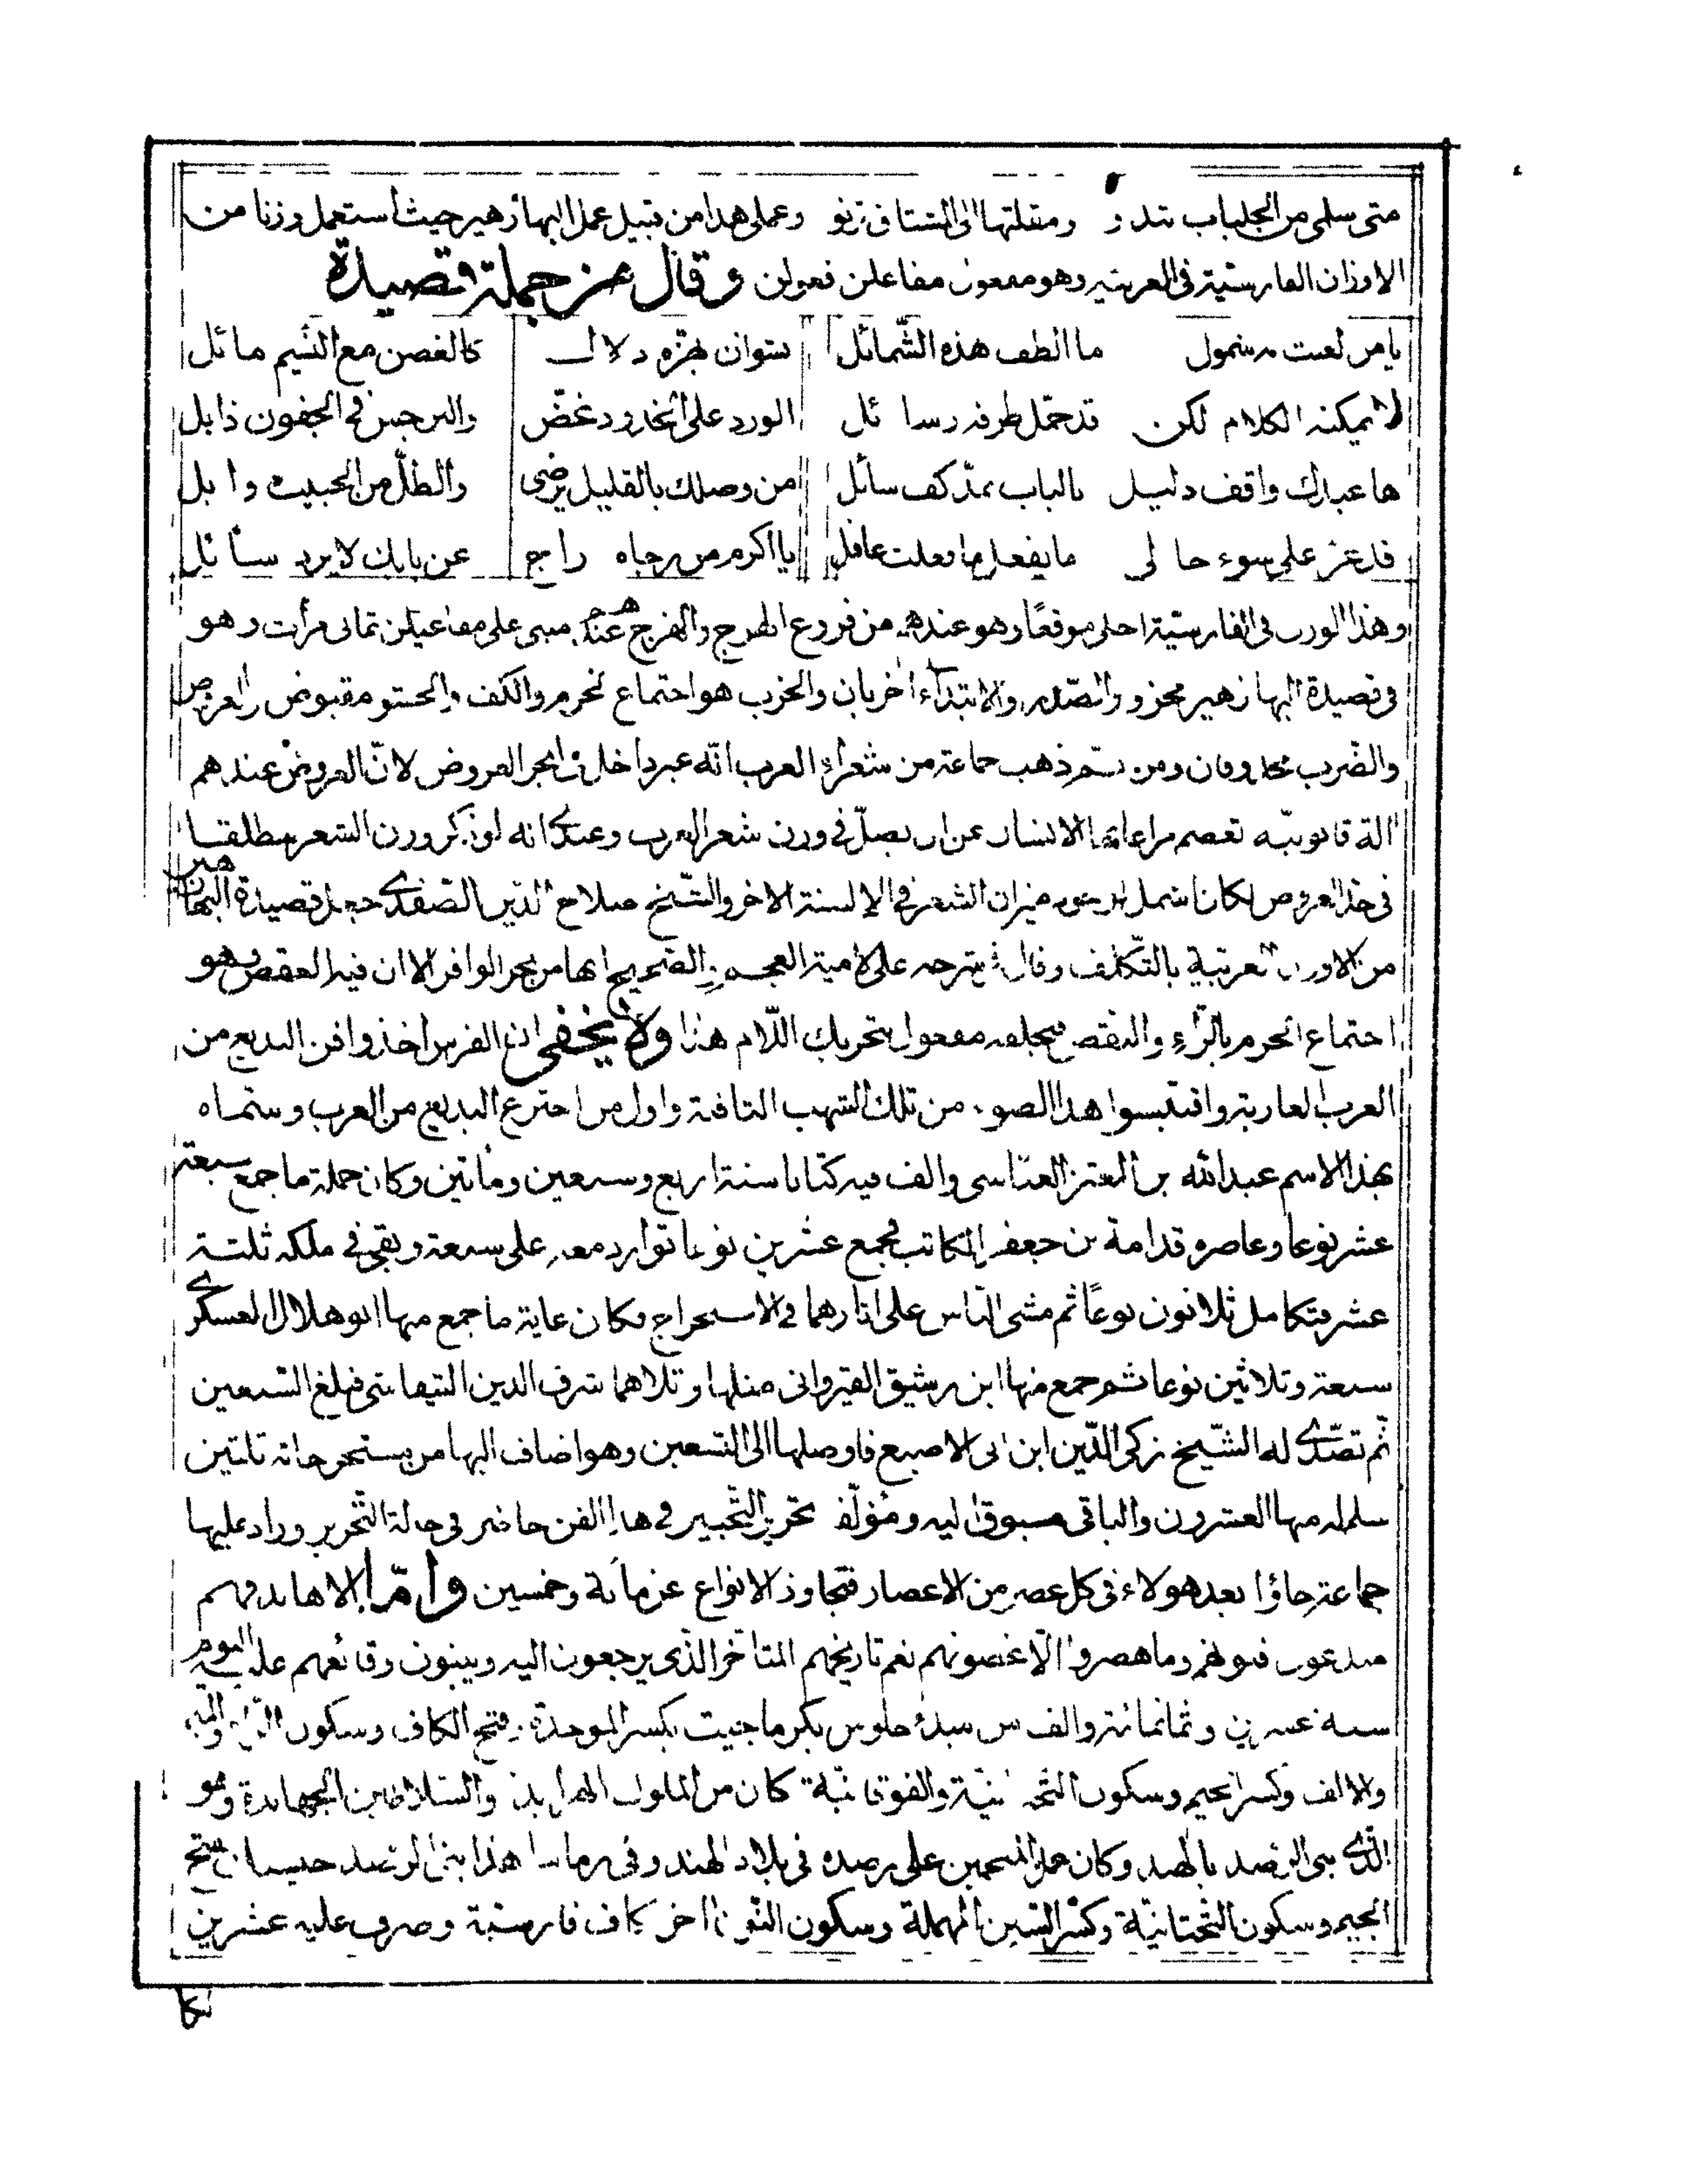 متى سلمى من الجلباب تبدو ومقلتها الى المشتاق ترنو وعملى هذا من قبيل عمل البهاء زهير حيث استعمل وزنا من
الاوزان الفارسية فى العربية وهو مفعول مفاعلن فعولن وقال من جملة قصيدة
يا من لعبت به شمول ما الطف هذه الشّمائل نشوان يهزّه دلال كالغصن مع النسيم مائل
لا يمكنه الكلام لكن قد حمّل طرفه رسائل الورد على الخدود غضّ والنرجس فى الجفون ذابل
ها عبدك واقف ذليل بالباب يمدّ كف سائل من وصلك بالقليل يرضى والطلّ من الحبيب وابل
قد عز على سوء حالى ما يفعل ما فعلت عاقل يا اكرم من رجاه راج عن بابك لا يرد سائل
وهذا الوزن فى الفارسية احلى موقعًا وهو عندهم من فروع الهزج والهزج عندهم مبنى على مفاعيلن ثمانى مرأت وهو
فى قصيدة البها زهير مجزو والصّدر والابتداء اخربان والخرب هو اجتماع الخرم والكف والحشو مقبوض والعروض
والضّرب محذوفان ومن ثم ذهب جماعة من شعراء العرب انّه غير داخل فى ابحر العروض لانّ العروض عندهم
الة قانونيّه تعصم مراعاتها الانسان عن ان يضلّ فى وزن شعر العرب وعندى انه لو ذكر وزن الشعر مطلقا
فى حد العروض لكان اشمل ميزان الشعر فى الالسنة الاخر والشّيخ صلاح الدّين الصّفدى جعل قصيدة البهاء زهير
من الاوزان العربية بالتّكلف وقال فى شرحه على لامية العجم الصحيح انها من بحر الوافر الا ان فيه العقص وهو
اجتماع الخرم بالرّاء والنقص فيخلفه مفعول بتحريك اللّام هذا ولا يخفى ان الفرس اخذوا فن البديع من
العرب العاربة واقتبسوا هذا الضوء من تلك الشهب الثاقبة واول من اخترع البديع من العرب وسمّاه
بهذا الاسم عبد الله بن المعتز العبّاسى والف فيه كتابا سنة اربع وسبعين ومأتين وكان جملة ما جمع سبعة
عشر نوعا وعاصره قدامة بن جعفر الكاتب فجمع عشرين نوعا توارد معه على سبعة وبقى فى ملكه ثلثة
عشر فتكامل ثلاثون نوعًا ثم مشى النّاس على اثارهما فى الاستخراج فكان غاية ما جمع منها ابو هلال العسكرى
سبعة وثلاثين نوعا ثم جمع منها ابن رشيق القيروانى مثلها وتلاهما شرف الدين التيفاشى فبلغ السّبعين
ثم تصدّى له الشّيخ زكى الدّين ابن ابى الاصبع فاوصلها الى التسعين وهو اضاف اليها من مستخرجاته ثلثين
سلم له منها العشرون والباقى مسبوق اليه ومؤلّفه تحرير التّحبير فى هذا الفن حاضر فى حالة التّحرير وزاد عليها
جماعة جاؤا بعد هولاء فى كل عصر من الاعصار فتجاوز الانواع عن مائة وخمسين وامّا الاهاند فهم
مبدعون فنونهم وما هصروا الّا غصونهم نعم تاريخهم المتأخر الذى يرجعون اليه ويبنون وقائعهم عليه اليوم
سنة عشرين وثمانمائة والف من مبدأ جلوس بكرماجيت بكسر الموحدة وفتح الكاف وسكون الراء والميم
والالف وكسر الجيم وسكون التحتانيّة والفوقانيّة كان من الملوك الهرابذة والسّلاطين الجهابذة وهو
الّذى بنى الرّصد بالهند وكان عمل المنجمين على رصده فى بلاد الهند وفى زماننا هذا بنى الرصد جيسنك بفتح
الجيم وسكون التّحتانيّة وكسر السّين المهملة وسكون النّون اخره كاف فارسية وصرف عليه عشرين
لكا